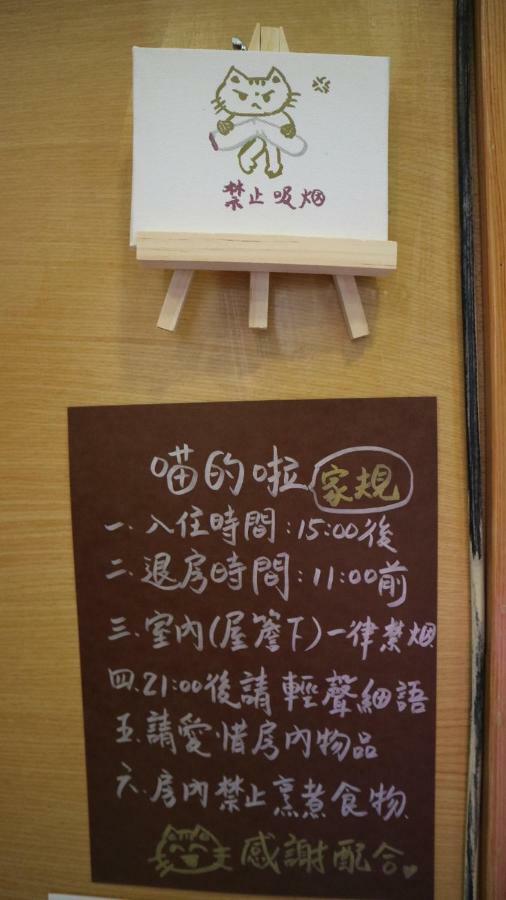 禁止吸烟
喵的啦 家規
一、入住時間:15:00後
二、退房時間:11:00前
三、室內(屋簷下)一律禁烟
四、21:00後請輕聲細語
五、請愛惜房內物品
六、房內禁止烹煮食物
感謝配合